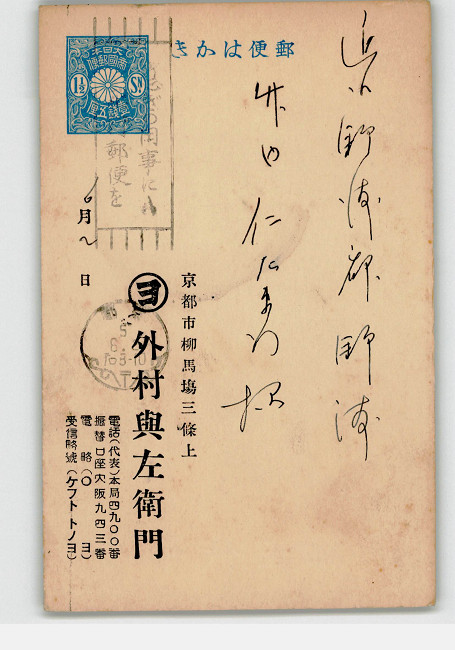 郵便はかき
大日本
帝國郵便
壹銭五厘
1½ Sn
急ぎの用事に
郵便を
野洲郡野洲
竹内仁左衛門様
月 日
京都市柳馬場三條上
ヨ 外村與左衛門
電話(代表)本局四九〇〇番
振替口座大阪九四三番
電略(〇ヨ)
受信略號(ケフト トノヨ)